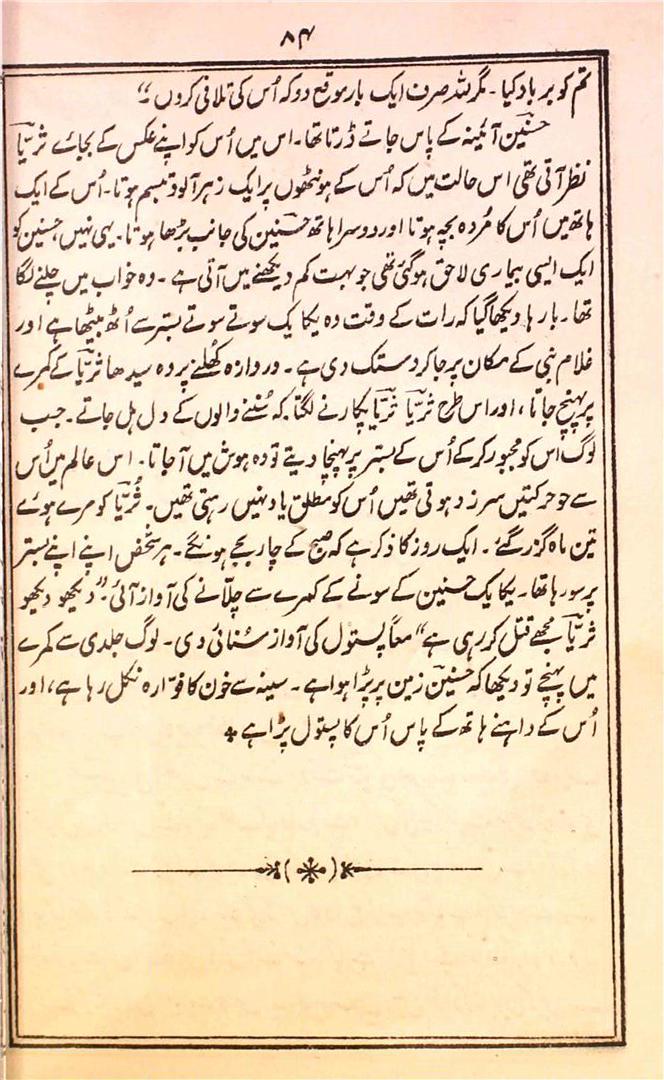 ۸۴
تم کو برباد کیا۔ مگر للہ صرف ایک بار موقع دو کہ اُس کی تلافی کروں۔"
حسنین آئینہ کے پاس جاتے ڈرتا تھا۔ اس میں اُس کو اپنے عکس کے بجائے ثریّا
نظر آتی تھی اس حالت میں کہ اُس کے ہونٹھوں پر ایک زہر آلود تبسم ہوتا۔ اُس کے ایک
ہاتھ میں اُس کا مُردہ بچہ ہوتا اور دوسرا ہاتھ حسنین کی جانب بڑھا ہوتا۔ یہی نہیں، حسنین کو
ایک ایسی بیماری لاحق ہو گئی تھی جو بہت کم دیکھنے میں آتی ہے۔ وہ خواب میں چلنے لگا
تھا۔ بارہا دیکھا گیا کہ رات کے وقت وہ یکایک سوتے سوتے بستر سے اُٹھ بیٹھا ہے اور
غلام نبی کے مکان پر جا کر دستک دی ہے۔ دروازہ کُھلنے پر وہ سیدھا ثریّا کے کمرے
پر پہنچ جاتا، اور اس طرح ثریّا ثریّا پکارنے لگتا کہ سُننے والوں کے دل ہل جاتے۔ جب
لوگ اس کو مجبور کر کے اُس کے بستر پر پہنچا دیتے تو وہ ہوش میں آ جاتا۔ اس عالم میں اُس
سے جو حرکتیں سرزد ہوتی تھیں اُس کو مطلق یاد نہیں رہتی تھیں۔ ثُریّا کو مرے ہوئے
تین ماہ گذر گئے۔ ایک روز کا ذکر ہے کہ صبح کے چار بجے ہونگے۔ ہر شخص اپنے اپنے بستر
پر سو رہا تھا۔ یکایک حسنین کے سونے کے کمرے سے چلّانے کی آواز آئی۔ "دیکھو دیکھو
ثریّا مجھے قتل کر رہی ہے" معاً پستول کی آواز سُنائی دی۔ لوگ جلدی سے کمرے
میں پہنچے تو دیکھا کہ حسنین زمین پر پڑا ہوا ہے۔ سینہ سے خون کا فوّارہ نکل رہا ہے، اور
اُس کے داہنے ہاتھ کے پاس اُس کا پستول پڑا ہے٭